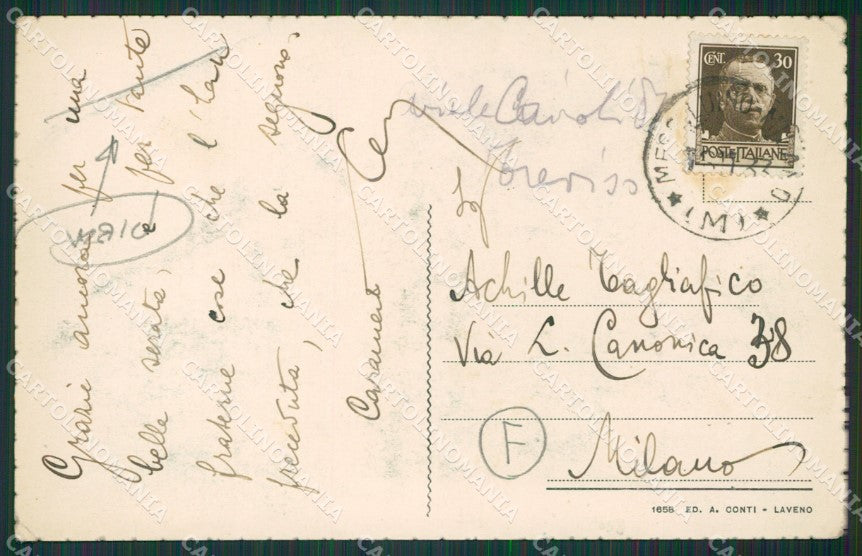 Grazie ancora per una
bella serata, e per tante
fraterne cose che l'han
preceduta, che la seguono.
Caramente
viale Cairoli
Treviso
CENT. 30
POSTE ITALIANE
(M)
Achille Tagliafico
Via L. Canonica 38
F
Milano
1658 ED. A. CONTI - LAVENO
CARTOLINOMANIA